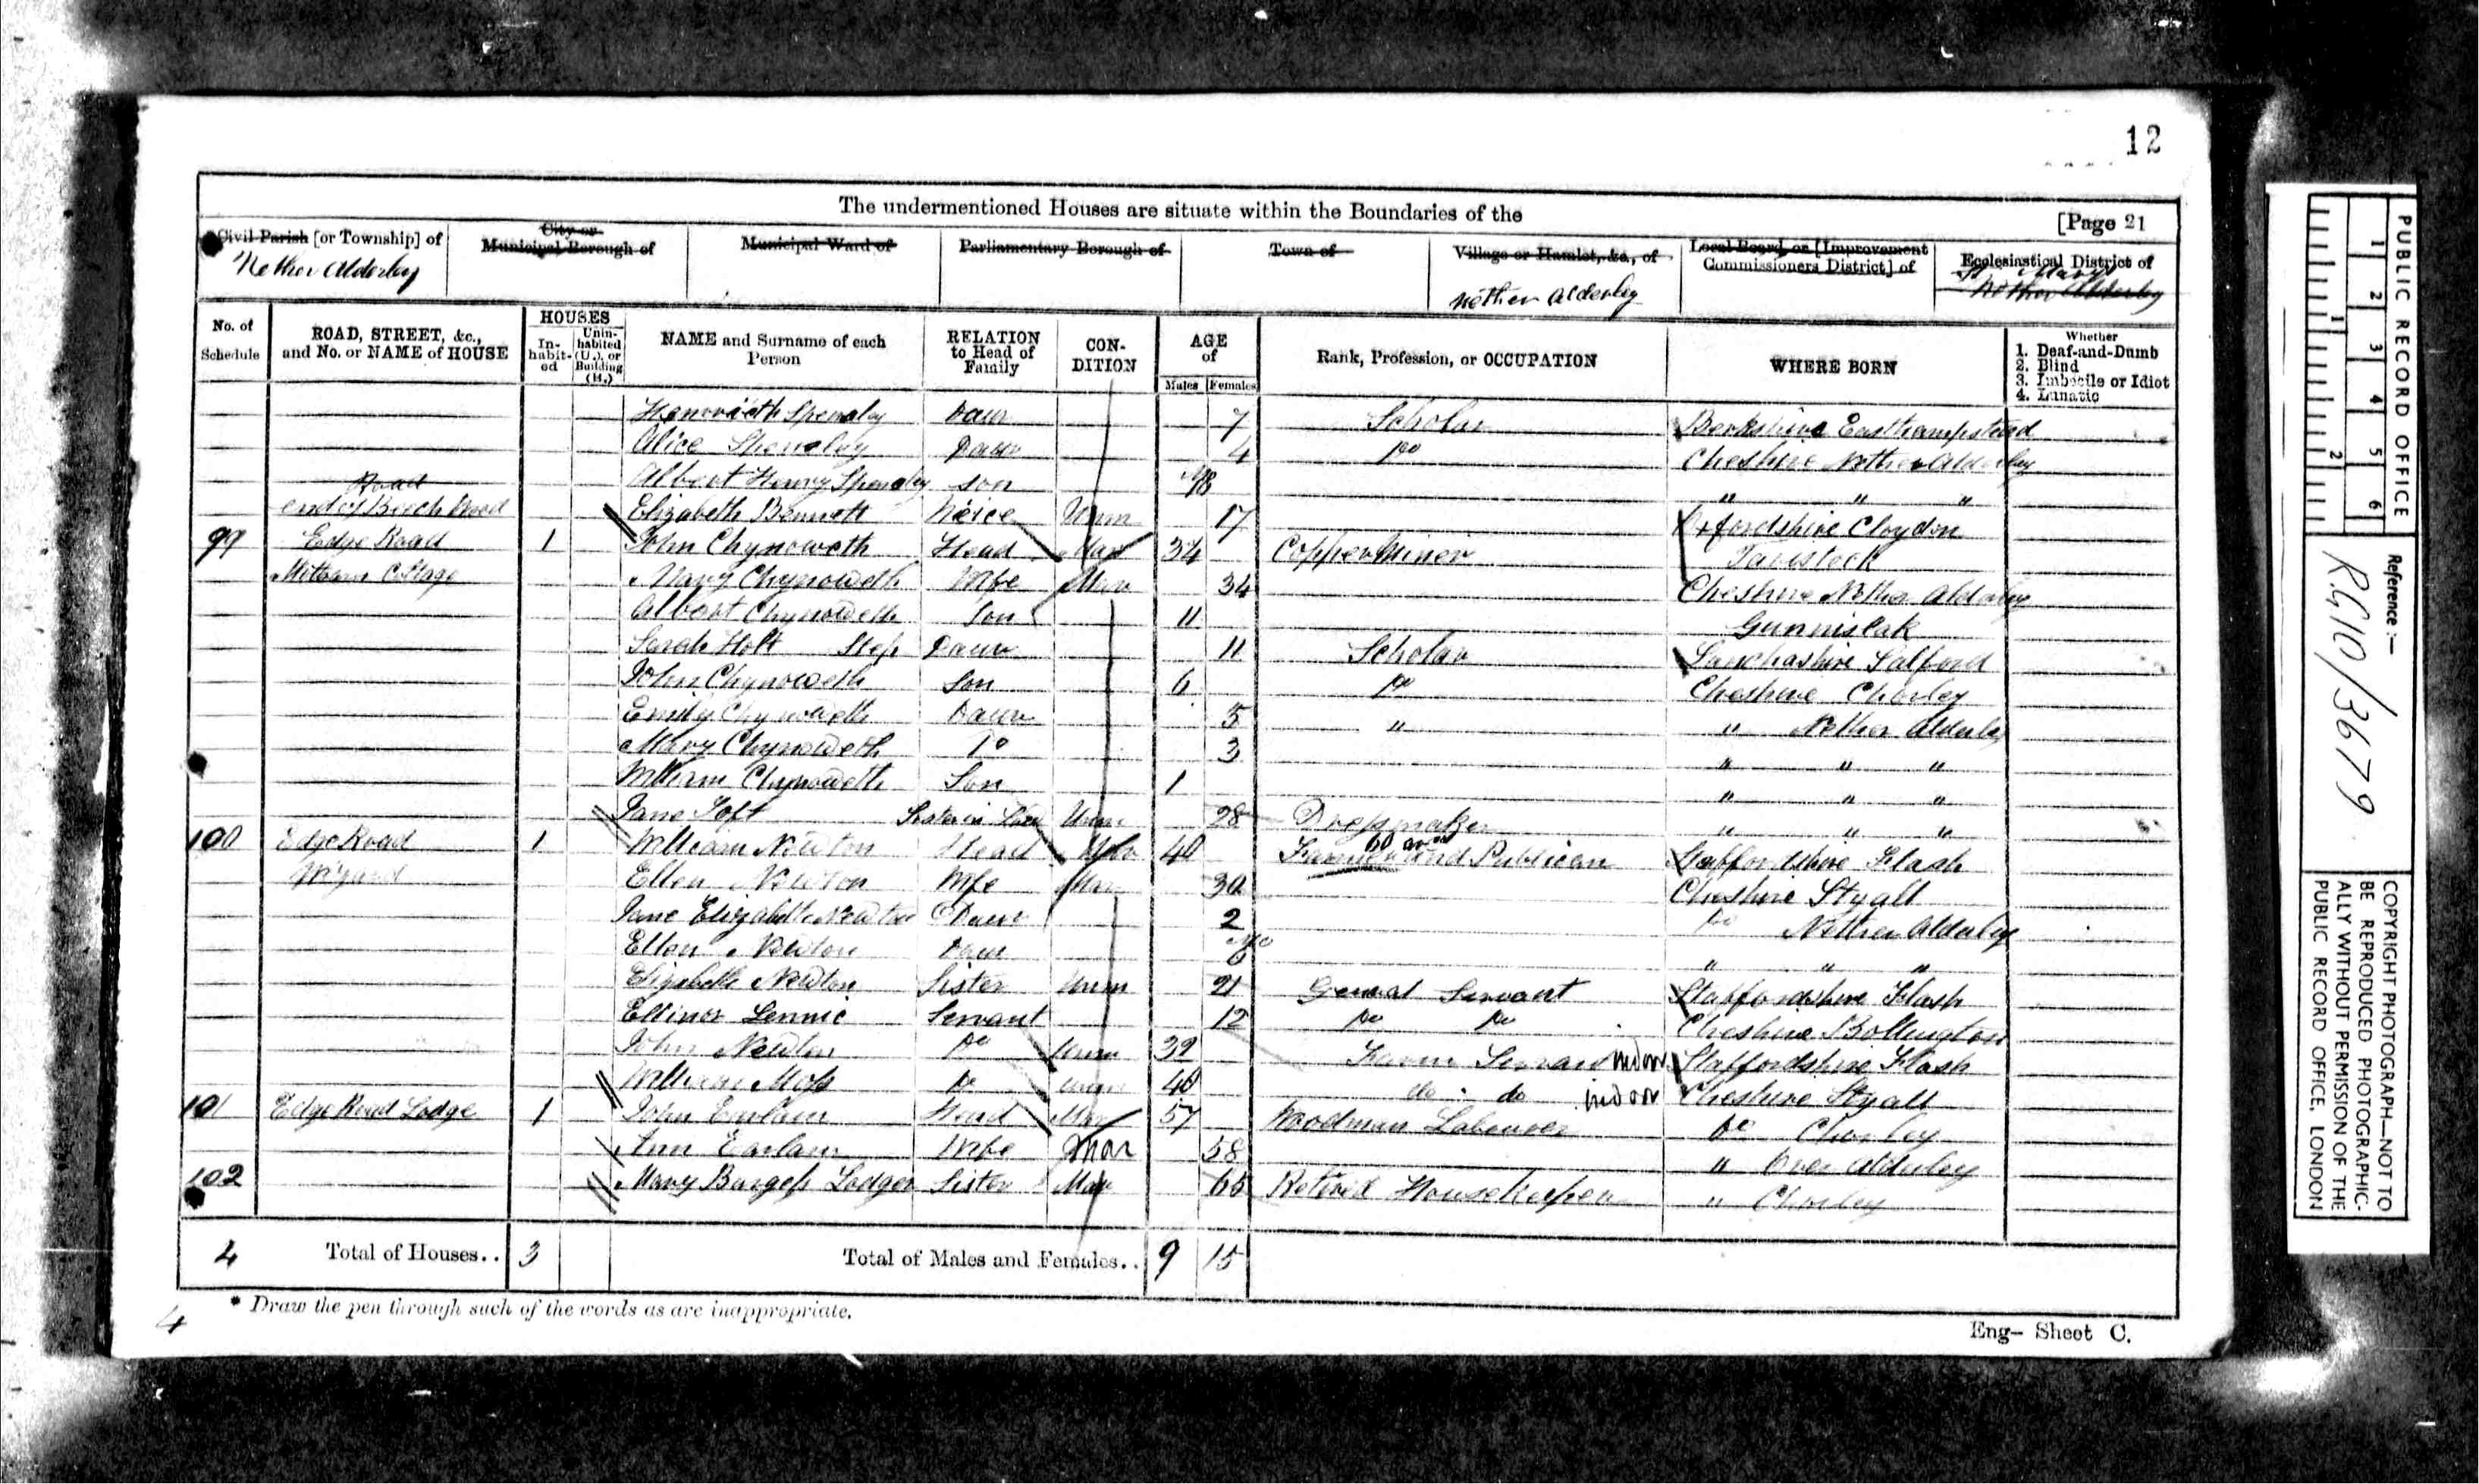 12
The undermentioned Houses are situate within the Boundaries of the
[Page 21
Civil Parish [or Township] of
City or Municipal Borough of
Municipal Ward of
Parliamentary Borough of
Town of
Village or Hamlet, &c., of
Local Board, or [Improvement Commissioners District] of
Ecclesiastical District of
Nether Alderley
Nether Alderley
St Marys
Nether Alderley
No. of Schedule
ROAD, STREET, &c., and No. or NAME of HOUSE
HOUSES
In-habit-ed
Unin-habited (U.), or Building (B.)
NAME and Surname of each Person
RELATION to Head of Family
CON-DITION
AGE of
Males
Females
Rank, Profession, or OCCUPATION
WHERE BORN
Whether
1. Deaf-and-Dumb
2. Blind
3. Imbecile or Idiot
4. Lunatic
Daur 7 Scholar Berkshire Easthampstead
Alice Daur 4 Do Cheshire Nether Alderley
Road Albert Henry son " " "
end of Birch Wood Elizabeth Bennett Neice Unm 17 Oxfordshire
99 Edge Road 1 John Chynoweth Head Mar 34 Copper Miner Tavistock
Cottage Mary Chynoweth Wife Mar 34 Cheshire Nether Alderley
Albert Chynoweth Son 11 Gunnislak
Sarah Holt Step Daur 11 Scholar Lanchashire Salford
John Chynoweth Son 6 Do Cheshire Chorley
Emily Chynoweth Daur 5 " " Nether Alderley
Mary Chynoweth Do 3 " " "
William Chynoweth Son 1 " " "
Jane Unm 28 Dressmaker " " "
100 Edge Road 1 William Newton Head Mar 40 Farmer and Publican Staffordshire Flash
Wizard Ellen Newton Wife Mar 30 Cheshire Styall
Jane Elizabeth Newton Daur 2 Do Nether Alderley
Ellen Newton Daur Mo 6 " " "
Elizabeth Newton Sister Unm 21 General Servant Staffordshire Flash
Ellinor Servant 12 Do Do Cheshire Bollington
John Newton Do Unm 39 Farm Servant indoor Staffordshire Flash
William Moss Do Unm 40 do do indoor Cheshire Styall
101 Edge Road Lodge 1 John Earlam Head Mar 57 Woodman Labourer Do Chorley
Ann Earlam Wife Mar 58 " Over Alderley
102 Mary Burgess Lodger Sister Mar 65 Retired Housekeeper " Chorley
4 Total of Houses.. 3 Total of Males and Females.. 9 15
* Draw the pen through such of the words as are inappropriate.
4
Eng- Sheet C.
PUBLIC RECORD OFFICE
1 2 3 4 5 6
1 2
Reference:-
RG10/3679
COPYRIGHT PHOTOGRAPH—NOT TO
BE REPRODUCED PHOTOGRAPHIC-
ALLY WITHOUT PERMISSION OF THE
PUBLIC RECORD OFFICE, LONDON